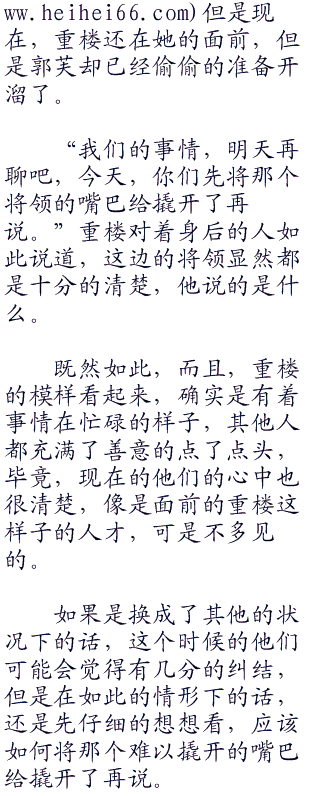 ww.heihei66.com)但是现
在，重楼还在她的面前，但
是郭芙却已经偷偷的准备开
溜了。
“我们的事情，明天再
聊吧，今天，你们先将那个
将领的嘴巴给撬开了再
说。”重楼对着身后的人如
此说道，这边的将领显然都
是十分的清楚，他说的是什
么。
既然如此，而且，重楼
的模样看起来，确实是有着
事情在忙碌的样子，其他人
都充满了善意的点了点头，
毕竟，现在的他们的心中也
很清楚，像是面前的重楼这
样子的人才，可是不多见
的。
如果是换成了其他的状
况下的话，这个时候的他们
可能会觉得有几分的纠结，
但是在如此的情形下的话，
还是先仔细的想想看，应该
如何将那个难以撬开的嘴巴
给撬开了再说。